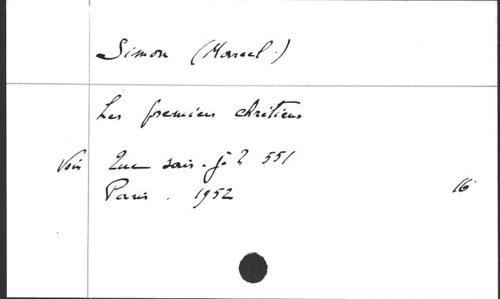 Simon (Marcel.)
Les premiers chrétiens
Voir Que sais-je? 551
Paris. 1952 16